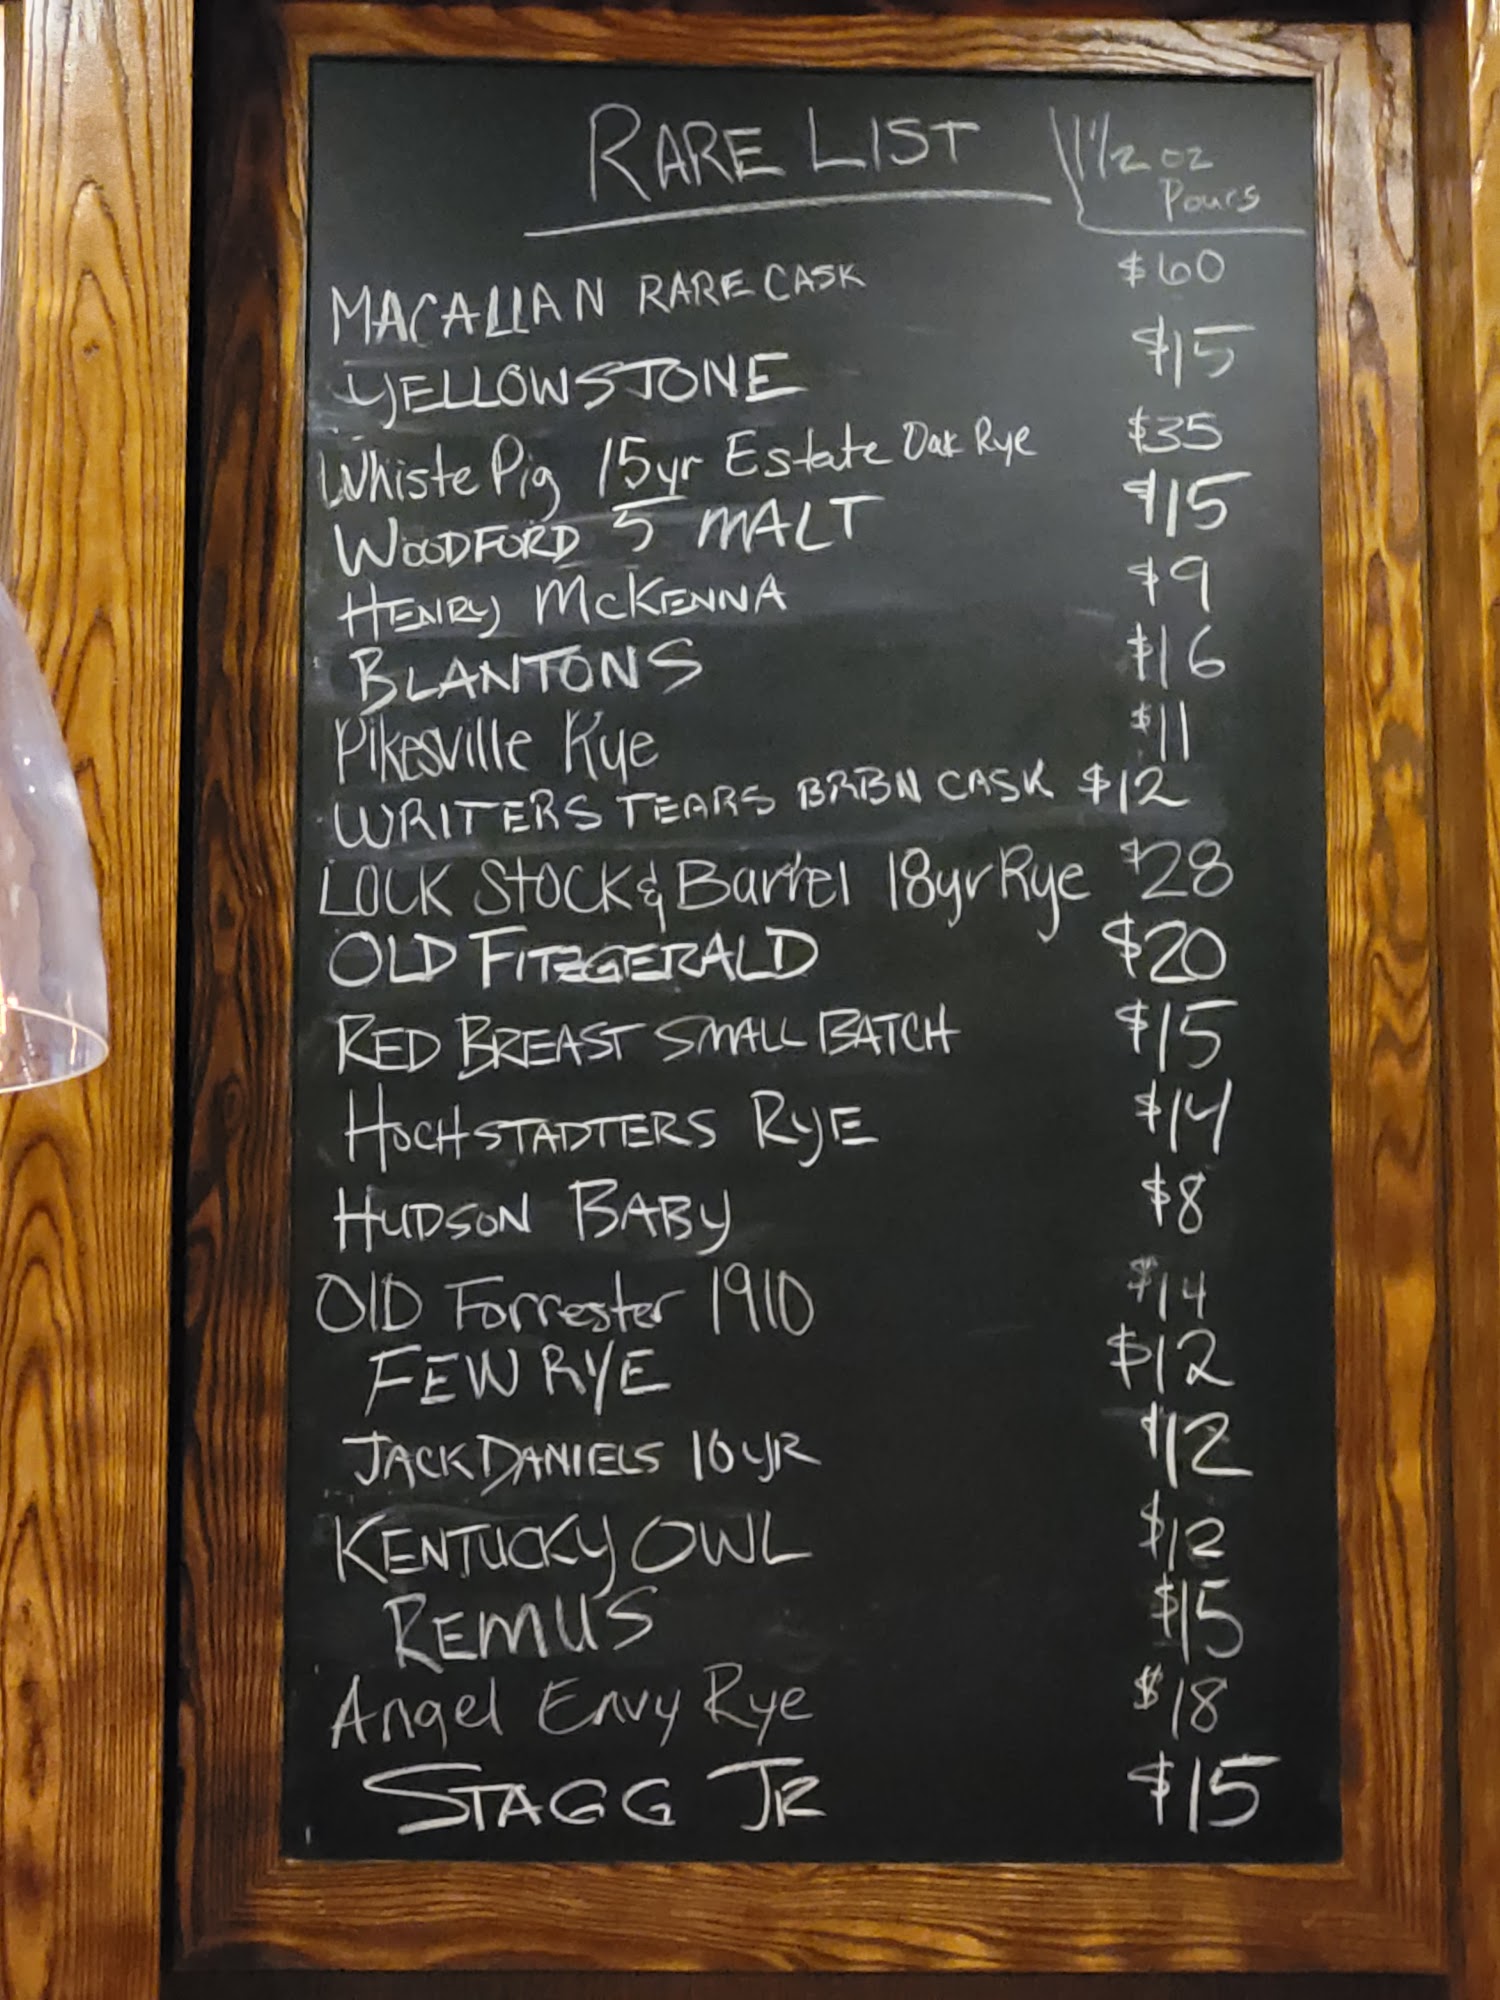 RARE LIST 1 1/2 oz
Pours
MACALLAN RARE CASK $60
YELLOWSTONE $15
Whiste Pig 15yr Estate Oak Rye $35
WOODFORD 5 MALT $15
HENRY MCKENNA $9
BLANTONS $16
Pikesville Rye $11
WRITERS TEARS BRBN CASK $12
LOCK STOCK & Barrel 18yr Rye $28
OLD FITZGERALD $20
RED BREAST SMALL BATCH $15
HOCHSTADTERS RYE $14
HUDSON BABY $8
OlD Forrester 1910 $14
FEW RYE $12
JACK DANIELS 10 YR $12
KENTUCKY OWL $12
REMUS $15
Angel Envy Rye $18
STAGG JR $15